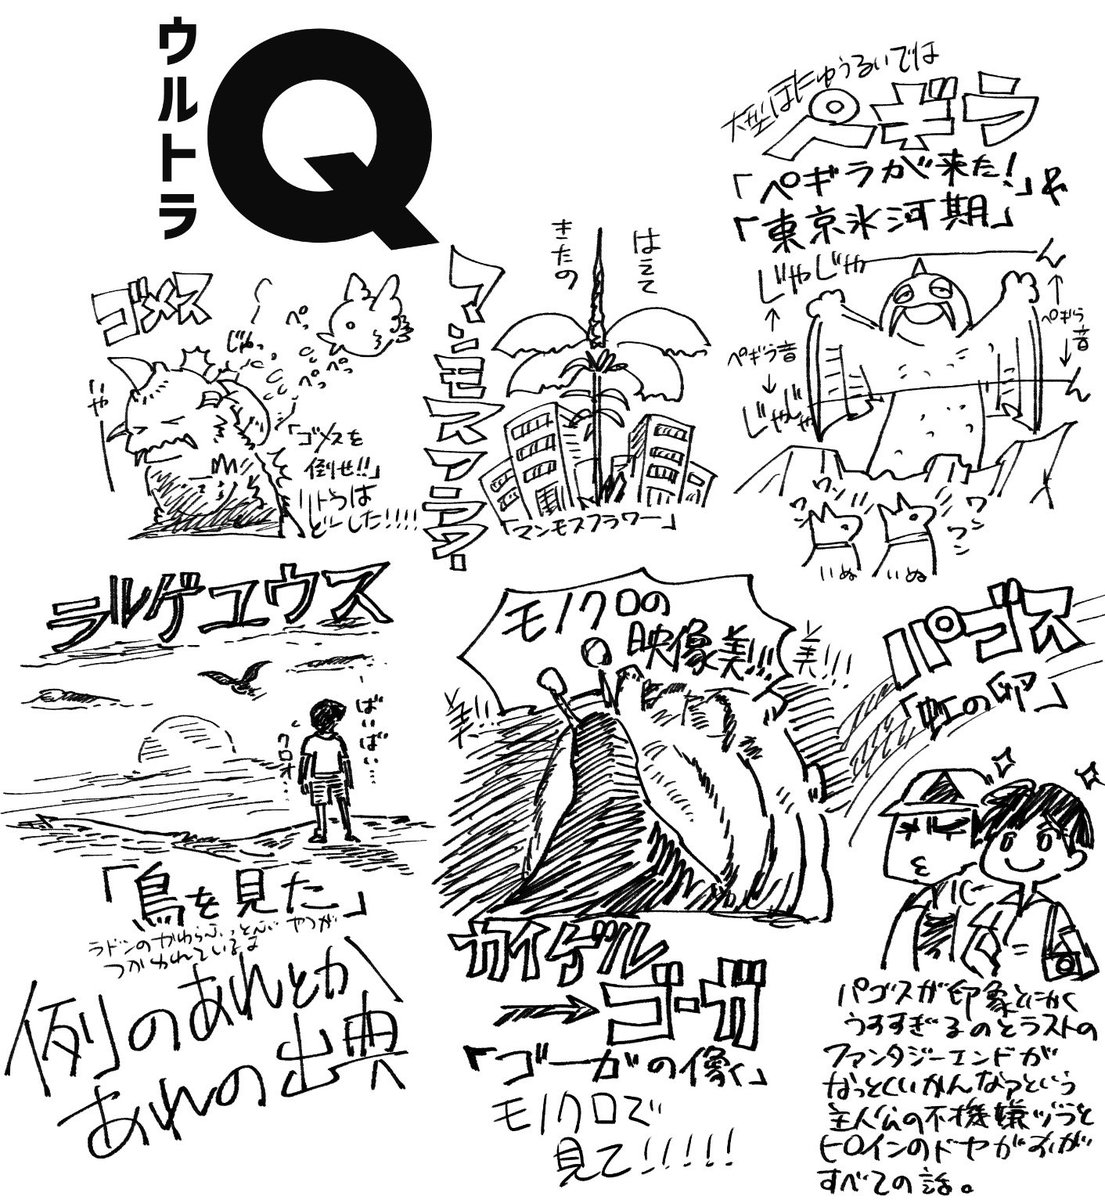 ウルトラ
Q
大型ほにゅうるいでは
ペギラ
「ペギラが来た!」や
「東京氷河期」
じゃじゃ
ん
ペギラ音
ペギラ音
じゃじゃ
ん
ワン
ワン
ワン
ワン
いぬ
いぬ
ゴメス
じゅっ
ぺっ
ぺっ
ぺっ
いや
「ゴメスを
倒せ!!」
リトラは
どーした!!!!
マンモスフラワー
はえて
きたの
「マンモスフラワー」
ラルゲユウス
ばいばい…
クロオ…
「鳥を見た」
ラドンのかわらふっとぶやつが
つかわれているよ
例のあれとか
あれの出典
モノクロの
映像美!!!
美!!
美!!!
カイゲル
→ゴーガ
「ゴーガの像」
モノクロで
見て!!!!!
パゴス
「虹の卵」
パゴスが印象とにかく
うすすぎるのとラストの
ファンタジーエンドが
なっとくいかんなァという
主人公の不機嫌ヅラと
ヒロインのドヤがおが
すべての話。